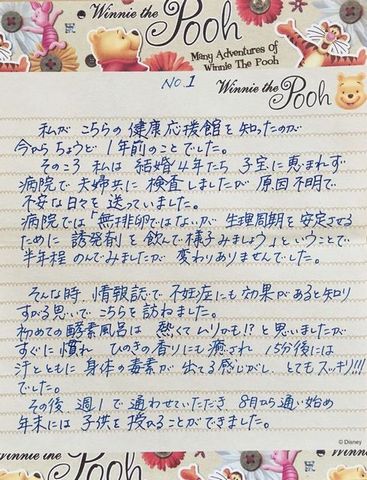 Winnie the Pooh
Many Adventures of
Winnie The Pooh
NO.1
Winnie the Pooh
私が こちらの 健康応援館を知ったのが
今からちょうど 1年前のことでした。
そのころ 私は 結婚4年たち 子宝に恵まれず
病院で 夫婦共に 検査しましたが 原因不明で
不安な日々を 送っていました。
病院では「無排卵ではないが 生理周期を安定させる
ために 誘発剤を飲んで様子みましょう」ということで
半年程 のんでみましたが 変わりありませんでした。
そんな時 情報誌で 不妊症にも効果があると知り
すがる思いで こちらを訪ねました。
初めての酵素風呂は 熱くてムリかも!?と思いましたが
すぐに慣れ ひのきの香りにも癒され 15分後には
汗とともに 身体の毒素が 出てる感じがし、とてもスッキリ!!!
でした。
その後 週1で 通わせていただき 8月から通い始め
年末には 子供を授かることができました。
© Disney
Winnie the Pooh